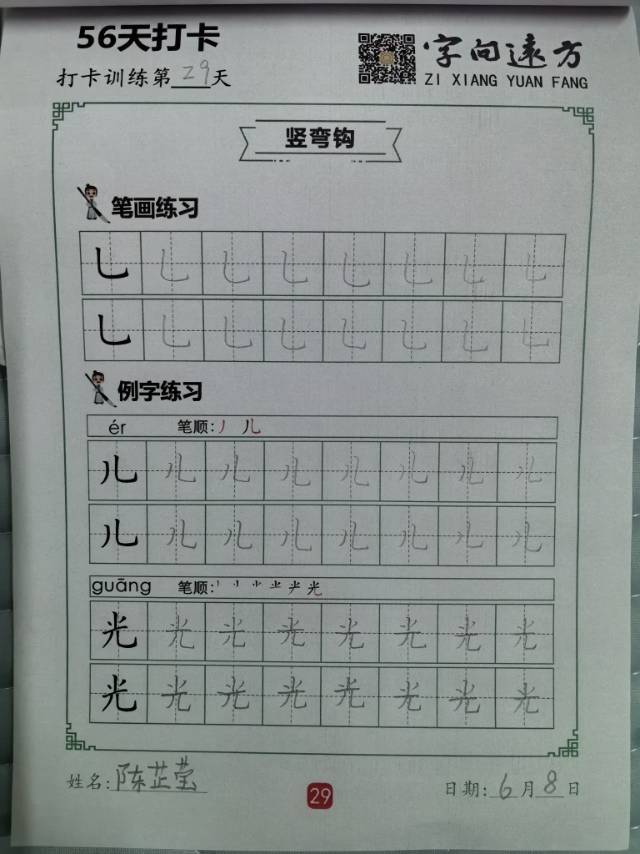 56天打卡
打卡训练第29天
字向远方
ZI XIANG YUAN FANG
竖弯钩
笔画练习
乚 乚 乚 乚 乚 乚 乚 乚
乚 乚 乚 乚 乚 乚 乚 乚
例字练习
ér 笔顺: 丿 儿
儿 儿 儿 儿 儿 儿 儿 儿
儿 儿 儿 儿 儿 儿 儿 儿
guāng 笔顺: 光
光 光 光 光 光 光 光 光
光 光 光 光 光 光 光 光
姓名: 陈芷莹
29
日期: 6月8日